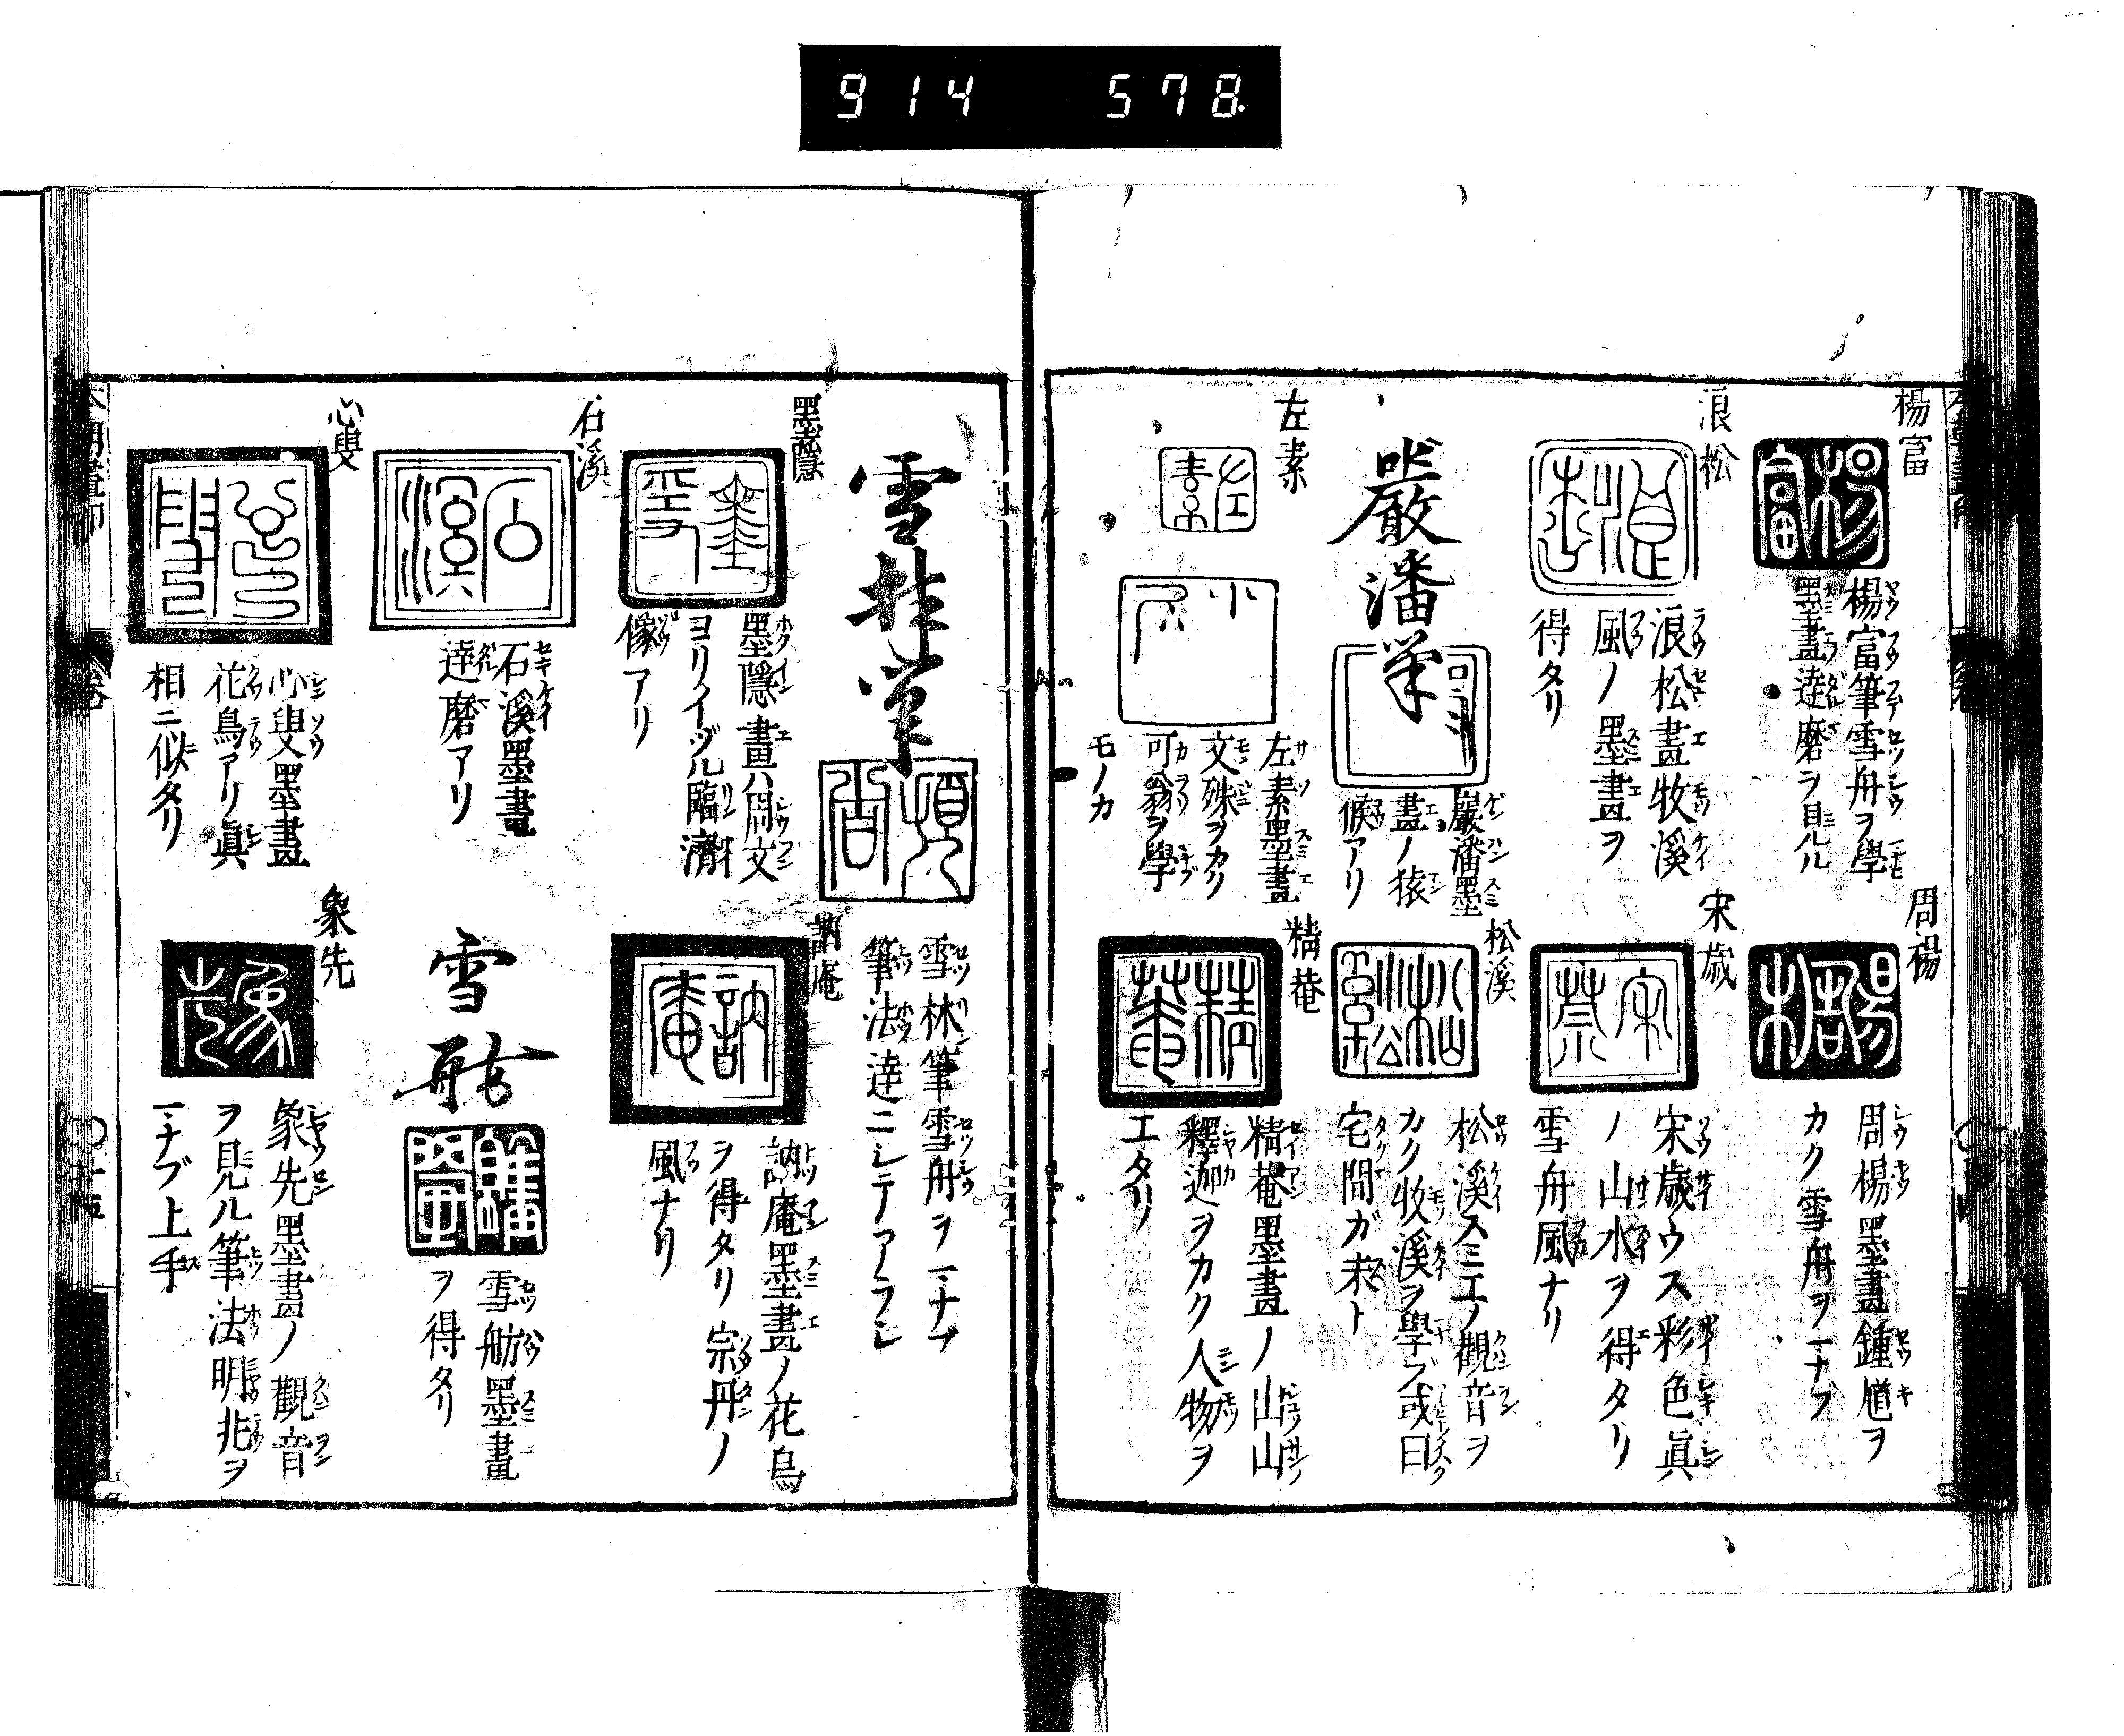 914 578
楊富
楊富筆雪舟ヲ學
墨畫達磨ヲ見ル
周楊
周楊墨畫鍾馗ヲ
カク雪舟ヲマナフ
浪松
浪松畫牧溪
風ノ墨畫ヲ
得タリ
宋歳
宋歳ウス彩色眞
ノ山水ヲ得タリ
雪舟風ナリ
巖潘筆
巖潘墨
畫ノ猿
猴アリ
松溪
松溪スミエノ觀音ヲ
カク牧溪ヲ學ブ或曰
宅間ガ末ト
左素
左素墨畫
文殊ヲカク
可翁ヲ學
モノカ
精菴
精菴墨畫ノ山山
釋迦ヲカク人物ヲ
エタリ
雪林筆
雪林筆雪舟ヲマナブ
筆法達ニシテアラシ
墨隱
墨隱畫ハ周文
ヨリイヅル臨濟
像アリ
訥庵
訥庵墨畫ノ花鳥
ヲ得タリ宗丹ノ
風ナリ
石溪
石溪墨畫
達磨アリ
雪舫
雪舫墨畫
ヲ得タリ
心叟
心叟墨畫
花鳥アリ眞
相ニ似タリ
象先
象先墨畫ノ觀音
ヲ見ル筆法明兆ヲ
マナブ上手